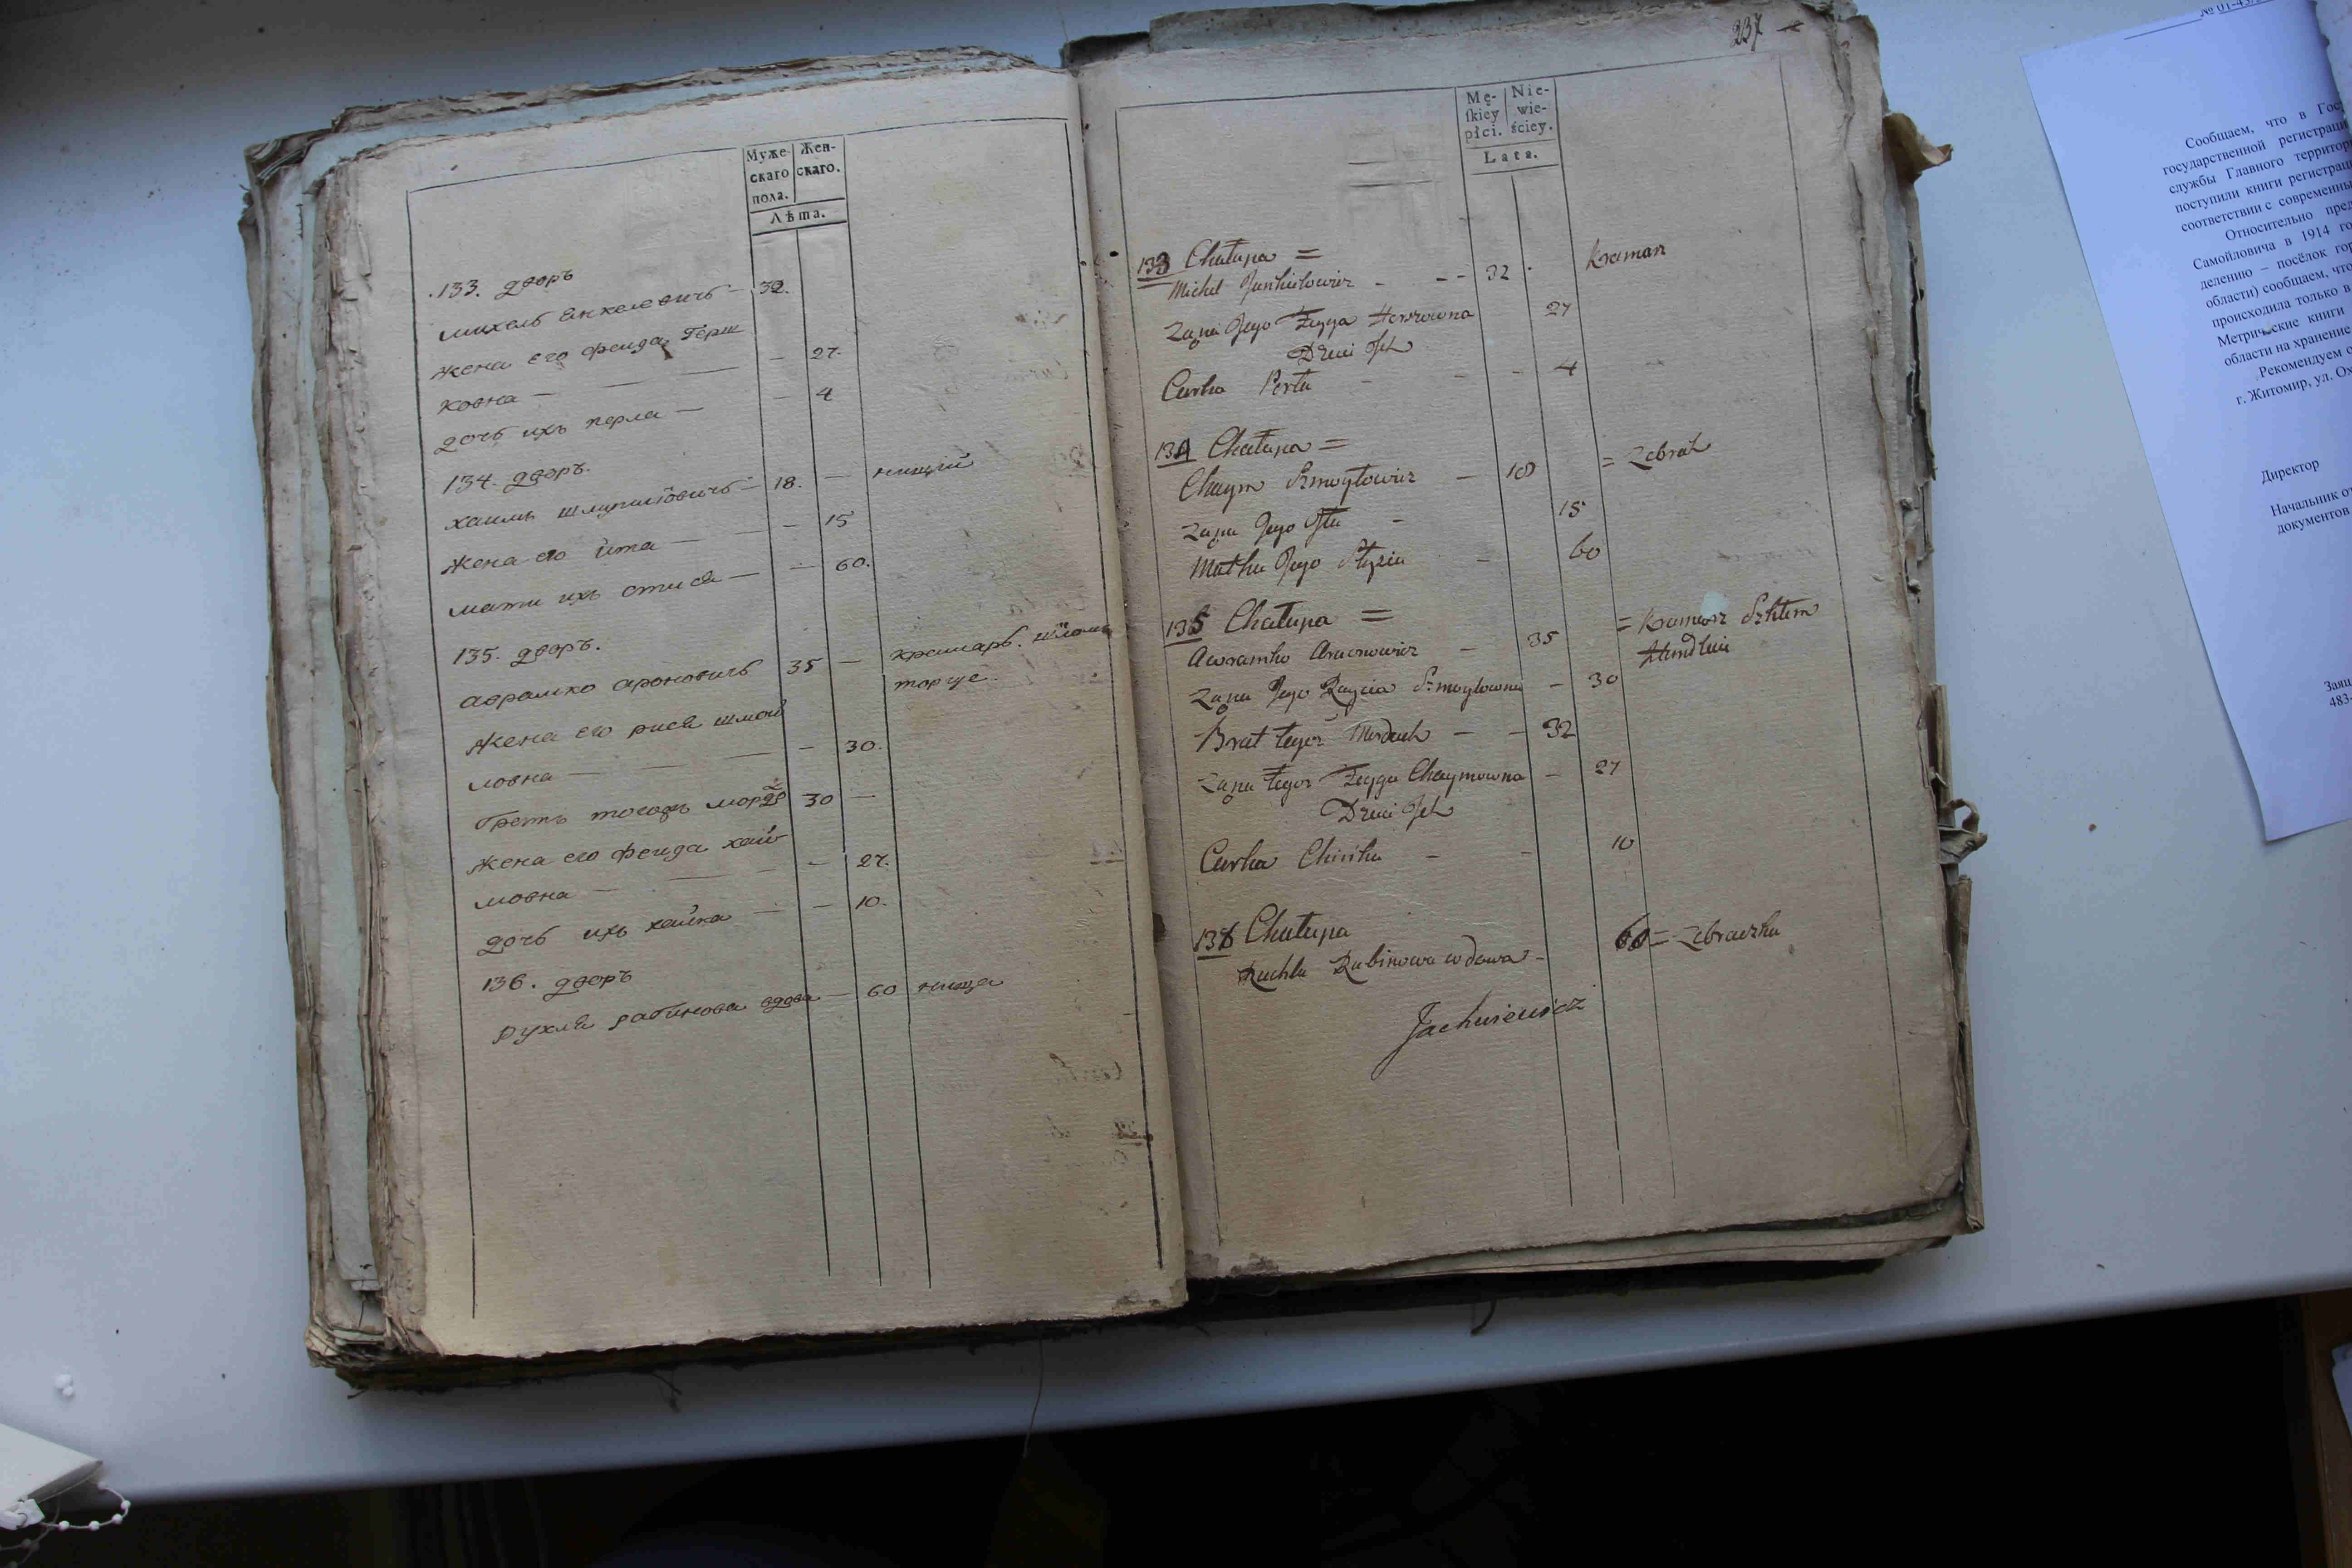 Муже-
скаго
пола.
Жен-
скаго.
Лѣта.
133. дворъ
михель Янкелевичъ — 32.
жена его фейда Герш
ковна — — — — 27.
дочь ихъ перла — — 4
134. дворъ.
хаимъ шмуйловичъ — 18. — нищій
жена его йта — — — 15
мати ихъ стися — — 60.
135. дворъ.
аврамко ароновичъ 35 — крамарь.
торгуе.
жена его рися шмой
ловна — — — — 30.
братъ тогожъ 30 —
жена его фейда хай
мовна — — — 27.
дочь ихъ хайка — — 10.
136. дворъ
рухля рабинова вдова — 60 нища
237
Mę-
skiey
płci.
Nie-
wie-
ściey.
Lata.
133 Chałupa =
Michel Jankielowicz - - - 32 Kramarz
Zona Jego Feyga Herszkowna 27
Dzieci Jch
Curka Perla - - - 4
134 Chałupa =
Chaym Szmoylowicz — 18 = Zebrak
Zona Jego Jta - 15
Matka Jego Stysia - 60
135 Chałupa =
Awramko Aaronowicz - 35 = Kramarz Szkłem
Handluie
Zona Jego Raysia Szmoylowna - 30
Brat tegoz Morduch - - 32
Zona tegoz Feyga Chaymowna - 27
Dzieci Jch
Curka Chaika - - 10
136 Chałupa
Ruchla Rabinowa wdowa - 60 = Zebraczka
Jachniewicz
Сообщаем, что в Гос
государственной регистраци
службы Главного территор
поступили книги регистрац
соответствии с современны
Относительно пред
Самойловича в 1914 го
делению – посёлок гор
области) сообщаем, что
происходила только в
Метрические книги
области на хранение
Рекомендуем о
г. Житомир, ул. Ох
Директор
Начальник от
документов
Заяц
483-